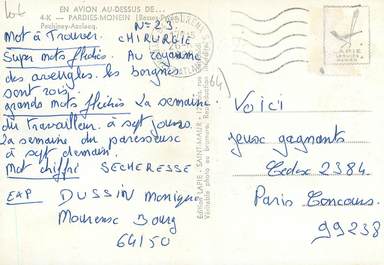 Lot
EN AVION AU-DESSUS DE...
4-K — PARDIES-MONEIN (Basses-Pyr
Pechiney-Auclacq.
N° 23
Mot à Trouver. CHIRURGIE
Super mots fléchés. Au royaume
des aveugles. les borgnes
sont rois.
grands mots fléchés La semaine
du travailleur. à sept jours
La semaine du paresseux
à sept demain.
Mot chiffré SECHERESSE
EXP DUSSIN Monique
Mourenx Bourg
64150
(64)
Edition LAPIE - SAINT-MAUR
Véritable photo au bromure. Reproduction
LAPIE
VOICI
jeux gagnants
Cedex 2384
Paris Concours.
99238